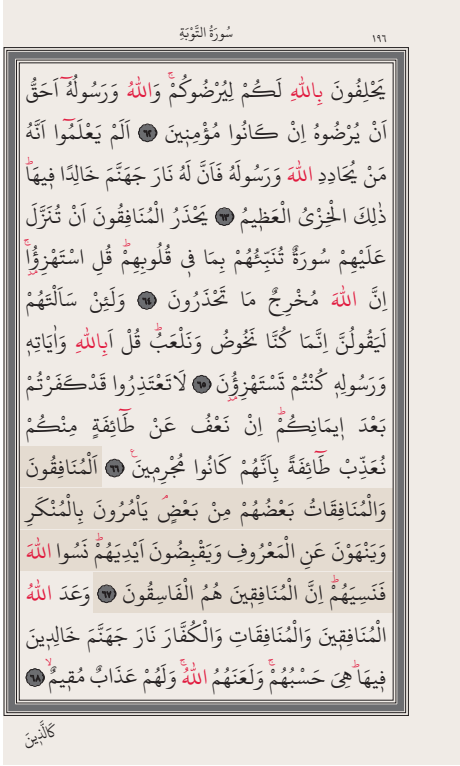 سُورَةُ التَّوْبَةِ
١٩٦
يَحْلِفُونَ بِاللّٰهِ لَكُمْ لِيُرْضُوكُمْۚ وَاللّٰهُ وَرَسُولُهُٓ اَحَقُّ
اَنْ يُرْضُوهُ اِنْ كَانُوا مُؤْمِنٖينَ ﴿٦٢﴾ اَلَمْ يَعْلَمُٓوا اَنَّهُ
مَنْ يُحَادِدِ اللّٰهَ وَرَسُولَهُ فَاَنَّ لَهُ نَارَ جَهَنَّمَ خَالِدًا فٖيهَاؕ
ذٰلِكَ الْخِزْىُ الْعَظٖيمُ ﴿٦٣﴾ يَحْذَرُ الْمُنَافِقُونَ اَنْ تُنَزَّلَ
عَلَيْهِمْ سُورَةٌ تُنَبِّئُهُمْ بِمَا فٖى قُلُوبِهِمْؕ قُلِ اسْتَهْزِؤُ۫اۚ
اِنَّ اللّٰهَ مُخْرِجٌ مَا تَحْذَرُونَ ﴿٦٤﴾ وَلَئِنْ سَاَلْتَهُمْ
لَيَقُولُنَّ اِنَّمَا كُنَّا نَخُوضُ وَنَلْعَبُؕ قُلْ اَبِاللّٰهِ وَاٰيَاتِهٖ
وَرَسُولِهٖ كُنْتُمْ تَسْتَهْزِؤُ۫نَ ﴿٦٥﴾ لَا تَعْتَذِرُوا قَدْ كَفَرْتُمْ
بَعْدَ اٖيمَانِكُمْؕ اِنْ نَعْفُ عَنْ طَٓائِفَةٍ مِنْكُمْ
نُعَذِّبْ طَٓائِفَةً بِاَنَّهُمْ كَانُوا مُجْرِمٖينَ۟ ﴿٦٦﴾ اَلْمُنَافِقُونَ
وَالْمُنَافِقَاتُ بَعْضُهُمْ مِنْ بَعْضٍۘ يَاْمُرُونَ بِالْمُنْكَرِ
وَيَنْهَوْنَ عَنِ الْمَعْرُوفِ وَيَقْبِضُونَ اَيْدِيَهُمْؕ نَسُوا اللّٰهَ
فَنَسِيَهُمْؕ اِنَّ الْمُنَافِقٖينَ هُمُ الْفَاسِقُونَ ﴿٦٧﴾ وَعَدَ اللّٰهُ
الْمُنَافِقٖينَ وَالْمُنَافِقَاتِ وَالْكُفَّارَ نَارَ جَهَنَّمَ خَالِدٖينَ
فٖيهَاؕ هِىَ حَسْبُهُمْۚ وَلَعَنَهُمُ اللّٰهُۚ وَلَهُمْ عَذَابٌ مُقٖيمٌۙ ﴿٦٨﴾
كَالَّذٖينَ